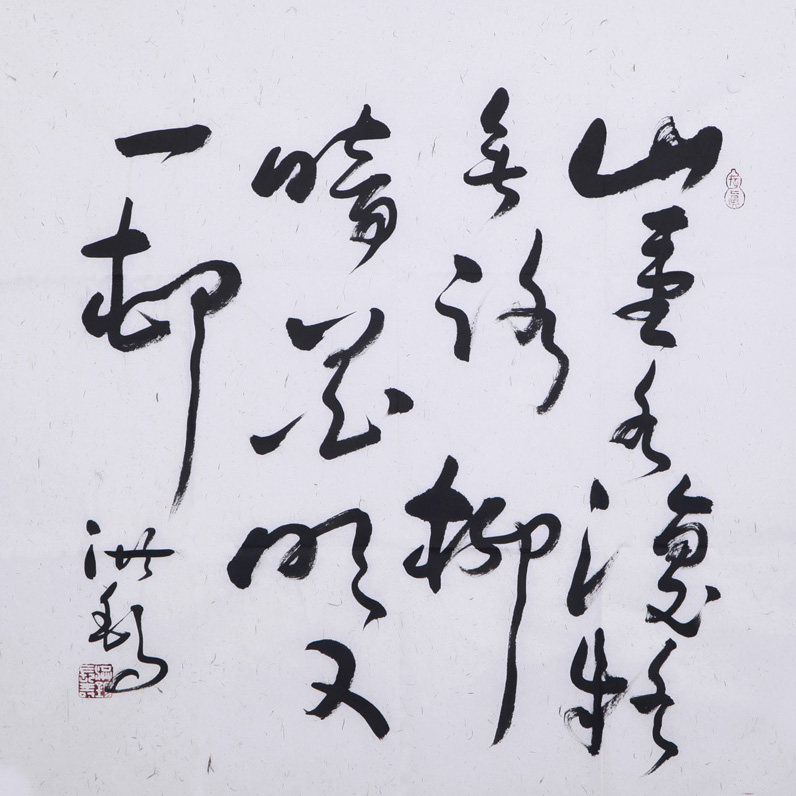 山重水復疑
無路柳
暗花明又
一邨
洪